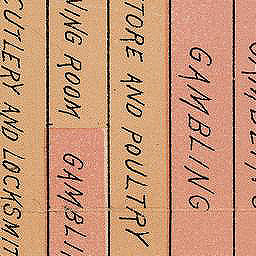 CUTLERY AND LOCKSMIT
NING ROOM
GAMBLI
TORE AND POULTRY
GAMBLING
GAMBLING